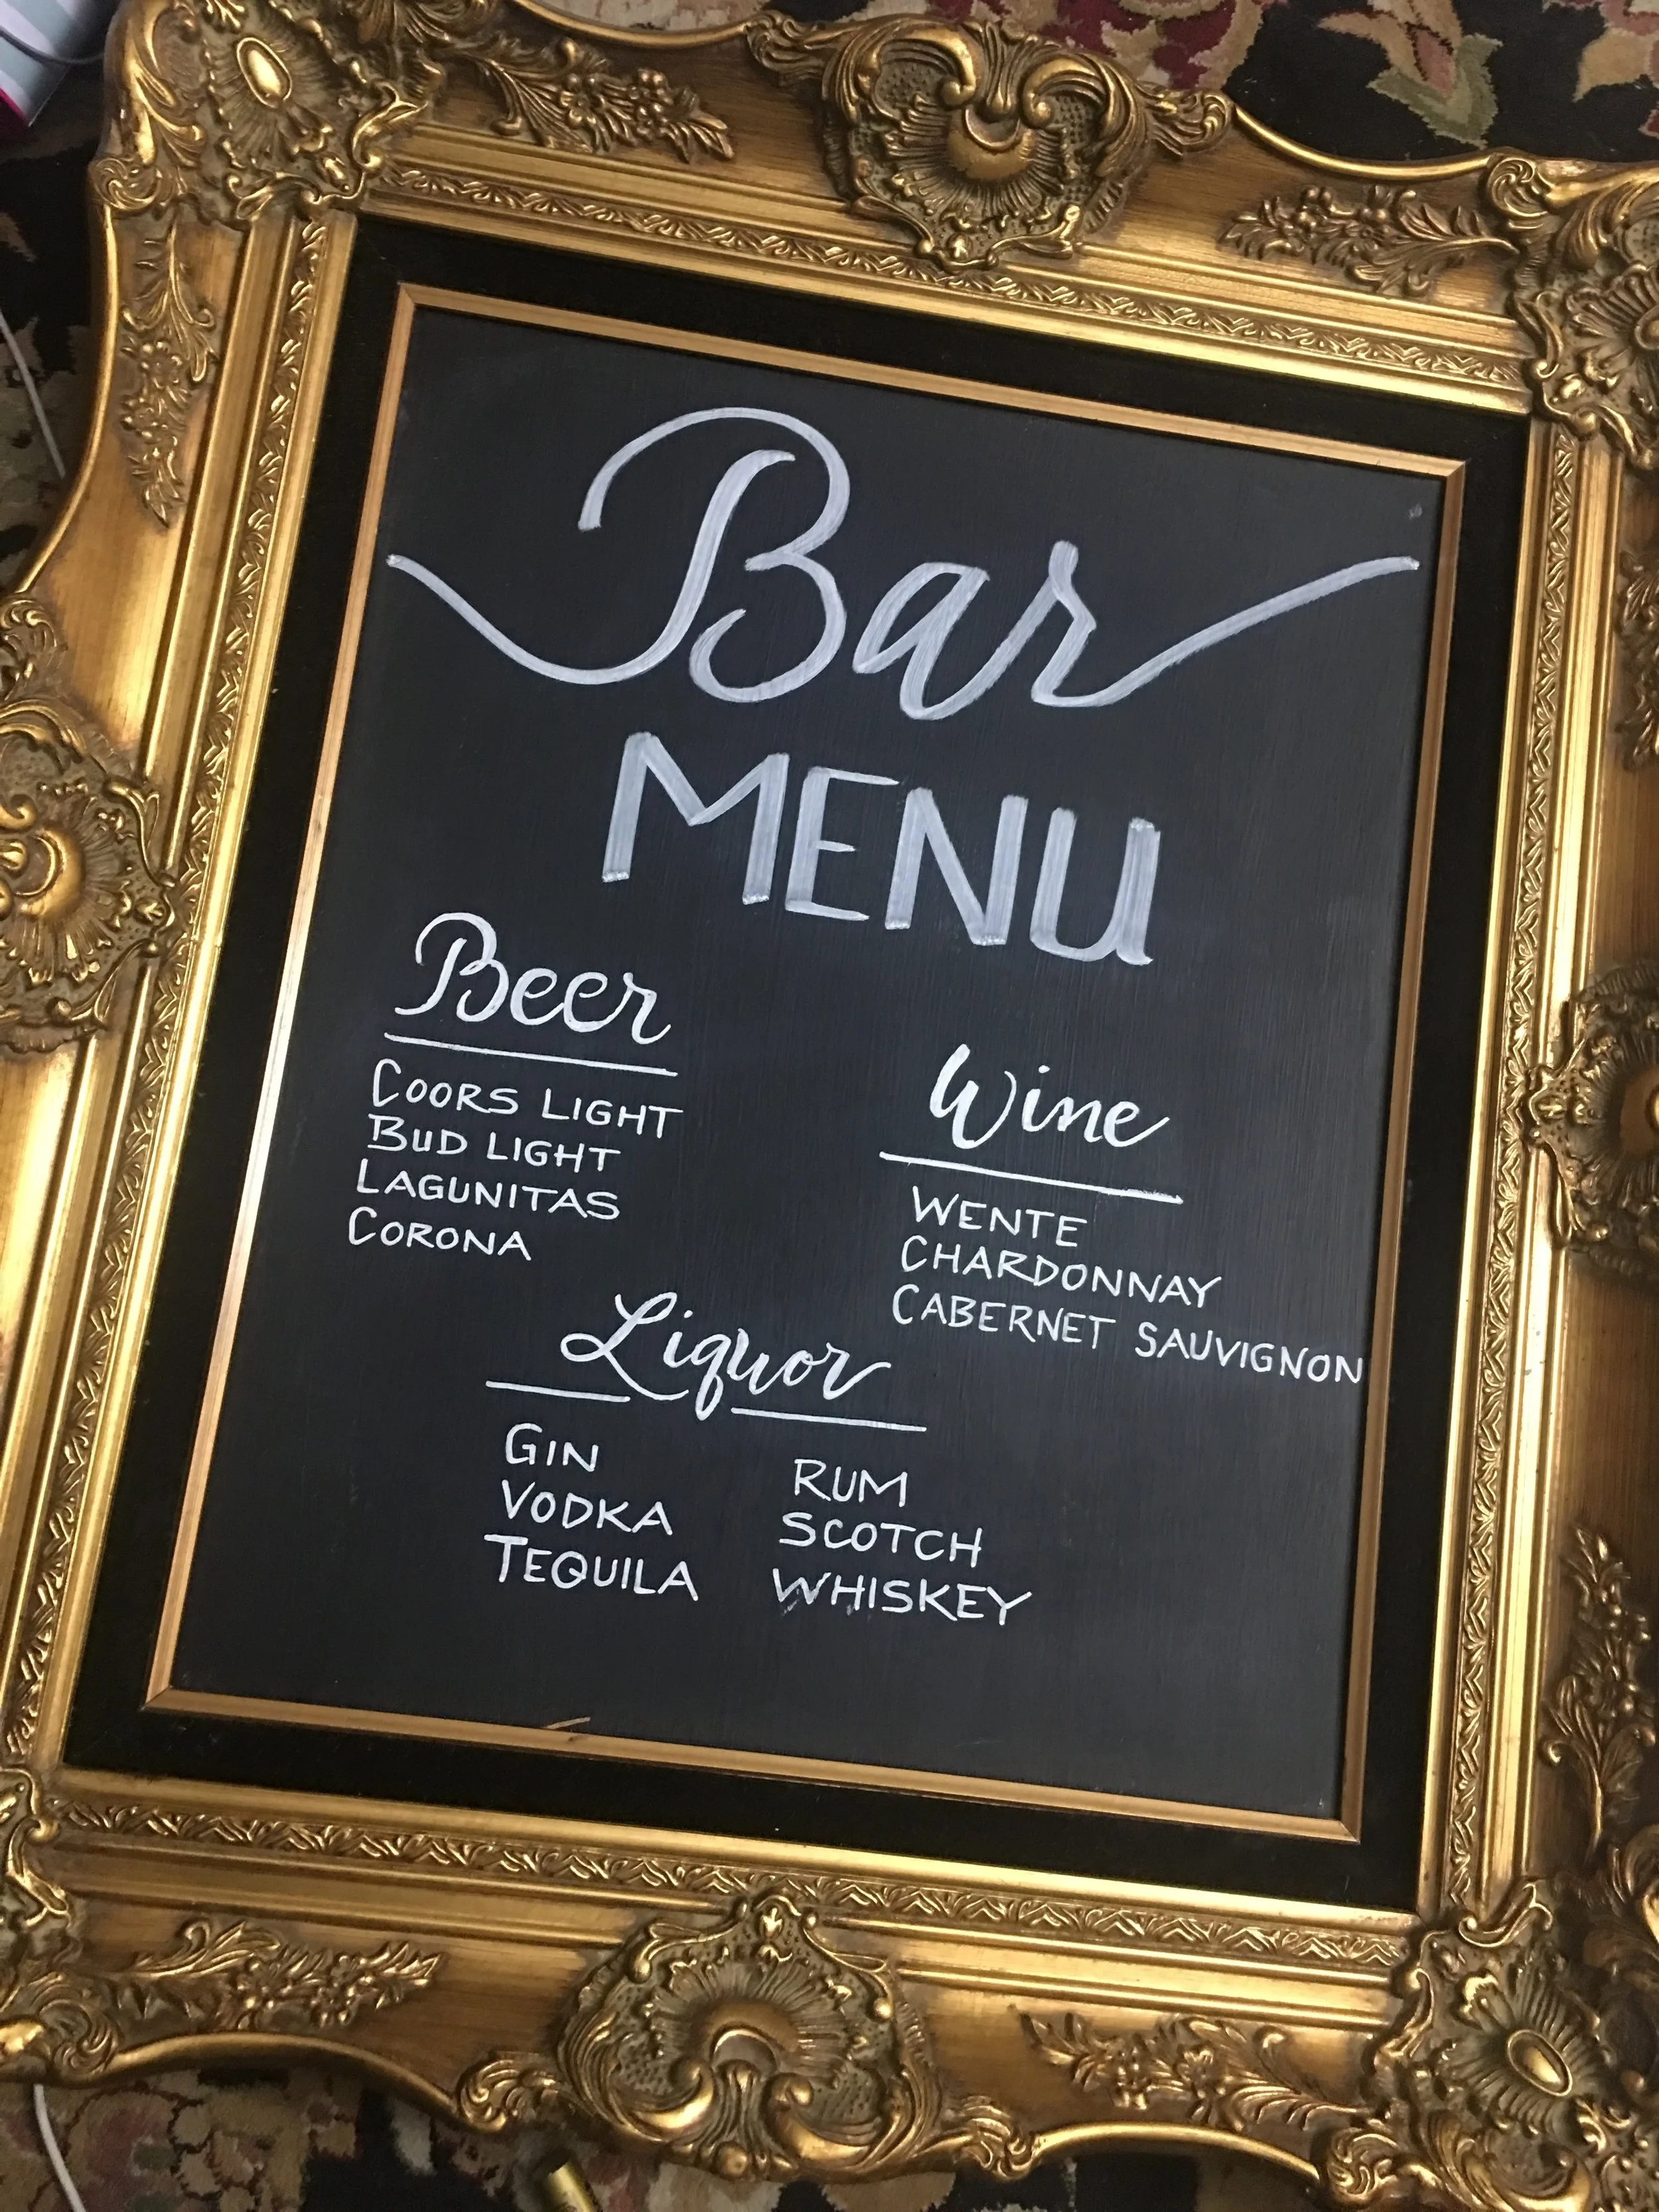 Bar
MENU
Beer
COORS LIGHT
BUD LIGHT
LAGUNITAS
CORONA
Wine
WENTE
CHARDONNAY
CABERNET SAUVIGNON
Liquor
GIN
VODKA
TEQUILA
RUM
SCOTCH
WHISKEY